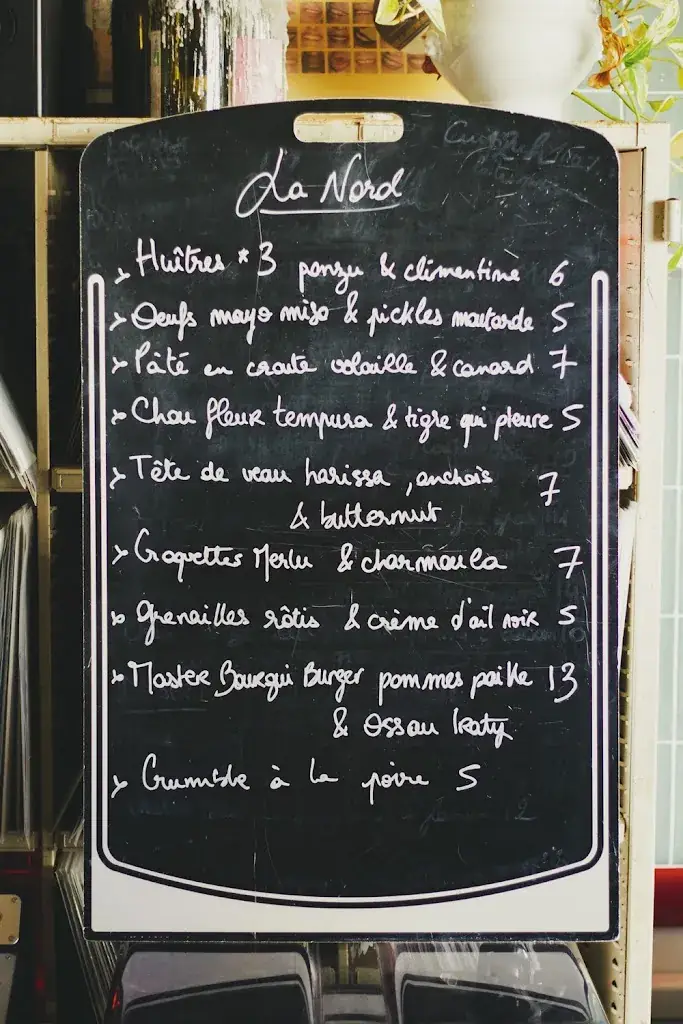 La Nord
Huîtres * 3 ponzu & clémentine 6
Oeufs mayo miso & pickles moutarde 5
Pâté en croute volaille & canard 7
Chou fleur tempura & tigre qui pleure 5
Tête de veau harissa, anchois
& butternut 7
Croquettes Merlu & charmoula 7
Grenailles rôtis & crème d'ail noir 5
Master Bourgui Burger pommes paille 13
& Ossau Iraty
Crumble à la poire 5